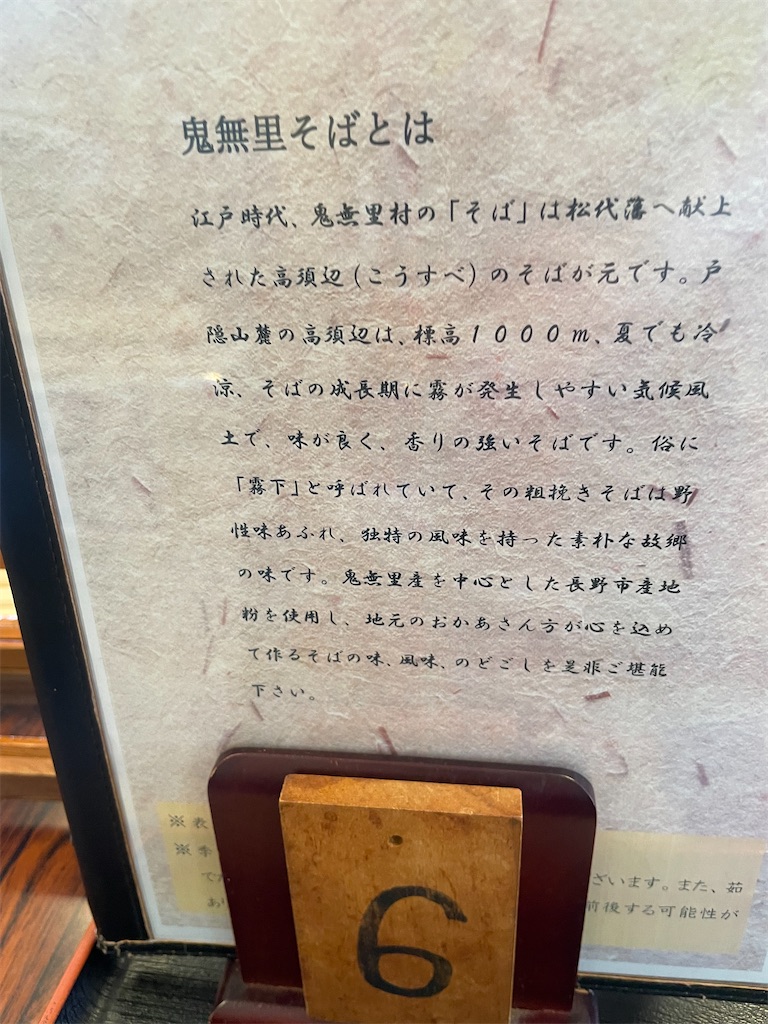 鬼無里そばとは
江戸時代、鬼無里村の「そば」は松代藩へ献上
された高須辺(こうすべ)のそばが元です。戸
隠山麓の高須辺は、標高１０００ｍ、夏でも冷
涼、そばの成長期に霧が発生しやすい気候風
土で、味が良く、香りの強いそばです。俗に
「霧下」と呼ばれていて、その粗挽きそばは野
性味あふれ、独特の風味を持った素朴な故郷
の味です。鬼無里産を中心とした長野市産地
粉を使用し、地元のおかあさん方が心を込め
て作るそばの味、風味、のどごしを是非ご堪能
下さい。
※表
※季
ざいます。また、茹
前後する可能性が
6